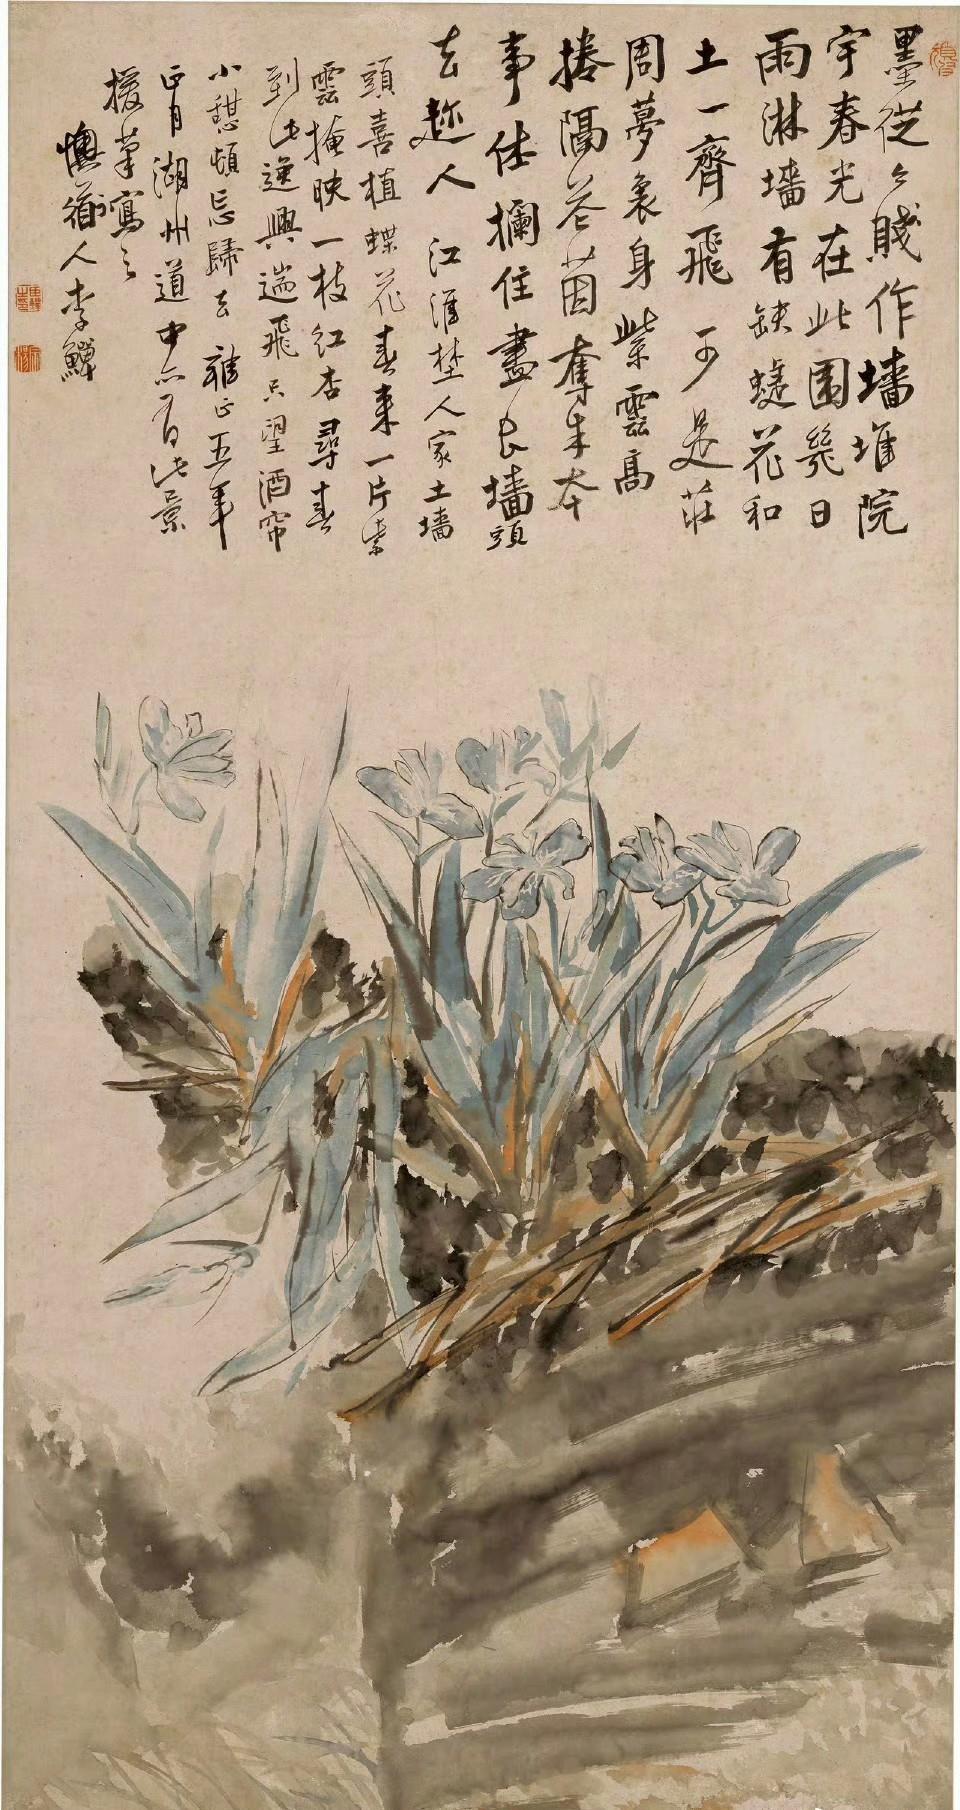 墨從々賤作墻堆院
宇春光在此圍幾日
雨淋墻有缺蜨花和
土一齊飛 可是莊
周夢裏身紫雲高
捲隔花茵奪朱本
事仕攔住盡長墻頭
去趂人 江淮埜人家土墻
頭喜植蝶花春来一片紫
雲掩映一枝紅杏尋春
到此逸興遄飛只望酒帘
小憇頓忘歸去 雍正五年
正月湖州道中亦有此景
援筆寫之
懊道人李鱓